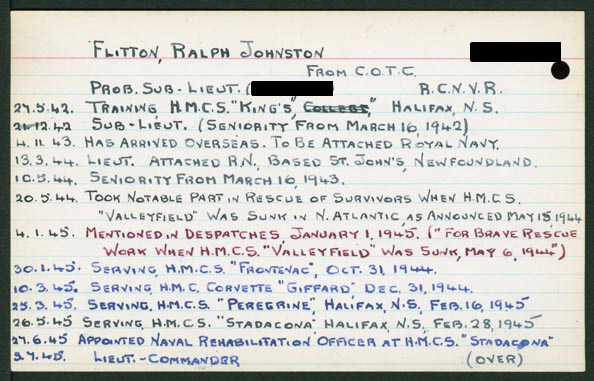 FLITTON, RALPH JOHNSTON
FROM C.O.T.C.
PROB. SUB-LIEUT. ( R.C.N.V.R.
27.5.42. TRAINING H.M.C.S. "KING'S", COLLEGE," HALIFAX, N.S.
21.12.42 SUB-LIEUT. (SENIORITY FROM MARCH 16, 1942)
4.11.43. HAS ARRIVED OVERSEAS. TO BE ATTACHED ROYAL NAVY.
13.3.44. LIEUT. ATTACHED R.N., BASED ST. JOHN'S, NEWFOUNDLAND.
10.5.44. SENIORITY FROM MARCH 16, 1943.
20.5.44. TOOK NOTABLE PART IN RESCUE OF SURVIVORS WHEN H.M.C.S.
"VALLEYFIELD" WAS SUNK IN N. ATLANTIC, AS ANNOUNCED MAY 18 1944
4.1.45. MENTIONED IN DESPATCHES, JANUARY 1, 1945. ("FOR BRAVE RESCUE
WORK WHEN H.M.C.S. "VALLEYFIELD" WAS SUNK, MAY 6, 1944")
30.1.45. SERVING, H.M.C.S. "FRONTENAC", OCT. 31, 1944.
10.3.45. SERVING, H.M.C. CORVETTE "GIFFARD" DEC. 31, 1944.
25.3.45. SERVING, H.M.C.S. "PEREGRINE", HALIFAX, N.S., FEB. 16, 1945
26.5.45 SERVING, H.M.C.S. "STADACONA" HALIFAX, N.S., FEB. 28, 1945
27.6.45 APPOINTED NAVAL REHABILITATION OFFICER AT H.M.C.S. "STADACONA"
5.7.45. LIEUT.-COMMANDER (OVER)